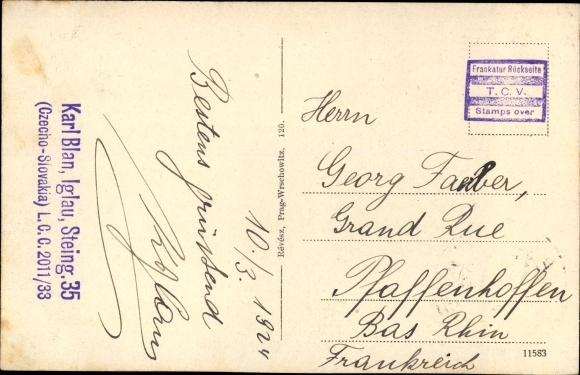 Karl Blan, Iglau, Steing. 35
(Czecho-Slovakia) L. C. C. 2011/33
Bestens grüssend
K. Blan
10./3. 1924
Révész, Prag-Wrschowitz, 120.
Frankatur Rückseite
T. C. V.
Stamps over
Herrn
Georg Faber,
Grand Rue
Pfaffenhoffen
Bas Rhin
Frankreich
11583